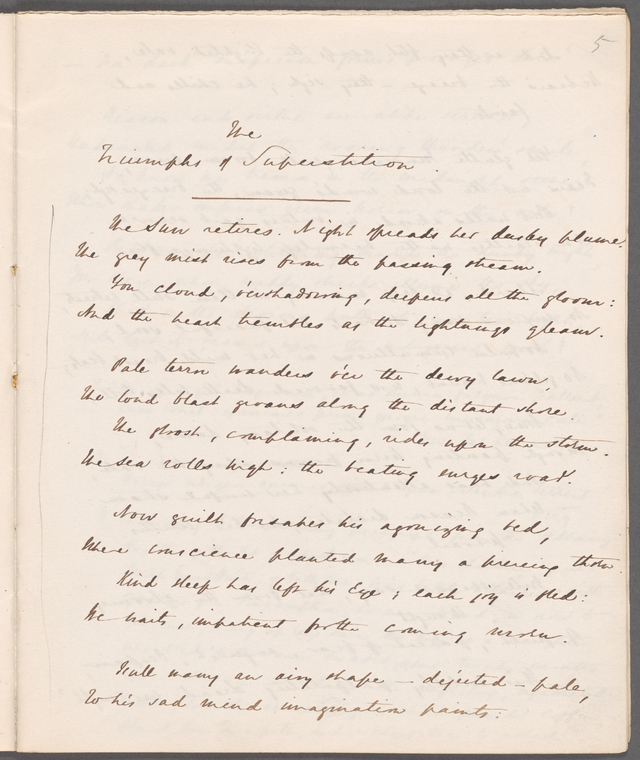 5
The
Triumphs of Superstition.
The Sun retires. Night spreads her dusky plume.
The grey mist rises from the passing stream.
Yon cloud, o'ershadowing, deepens all the gloom:
And the heart trembles as the lightnings gleam.
Pale terror wanders o'er the dewy lawn.
The loud blast groans along the distant shore.
The ghost, complaining, rides upon the storm.
The sea rolls high: the beating surges roar.
Now guilt forsakes his agonizing bed,
Where conscience planted many a piercing thorn.
Kind sleep has left his Eye; each joy is fled:
He waits, impatient for the coming morn.
Full many an airy shape – dejected – pale,
To his sad mind imagination paints: